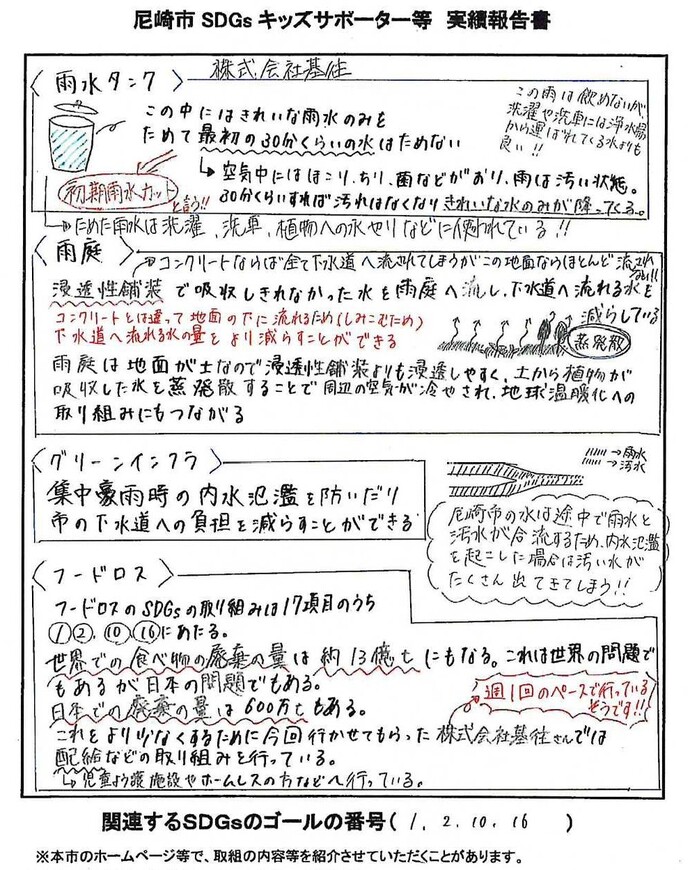 尼崎市 SDGs キッズサポーター等 実績報告書
株式会社基住
雨水タンク
この中にはきれいな雨水のみを
ためて最初の30分くらいの水はためない
この雨は飲めないが、
洗濯や洗車には浄水場
から運ばれている水よりも
良い!!
初期雨水カット
と言う!!
↳空気中にはほこり、ちり、菌などがおり、雨は汚い状態。
30分くらいすれば汚れはなくなりきれいな水のみが降ってくる。
→ためた雨水は洗濯、洗車、植物への水やりなどに使われている!!
雨庭
→コンクリートならば全て下水道へ流されてしまうがこの地面ならほとんど流されない!!
浸透性舗装で吸収しきれなかった水を雨庭へ流し、下水道へ流れる水を
減らしている
コンクリートとは違って地面の下に流れるため(しみこむため)
下水道へ流れる水の量をより減らすことができる
蒸発散
雨庭は地面が土なので浸透性舗装よりも浸透しやすく、土から植物が
吸収した水を蒸発散することで周辺の空気が冷やされ、地球温暖化への
取り組みにもつながる
グリーンインフラ
集中豪雨時の内水氾濫を防いだり
市の下水道への負担を減らすことができる
→雨水
→汚水
尼崎市の水は途中で雨水と
汚水が合流するため、内水氾濫
を起こした場合は汚い水が
たくさん出てきてしまう!!
フードロス
フードロスのSDGsの取り組みは17項目のうち
①②,⑩⑯にあたる。
世界での食べ物の廃棄の量は約13億tにもなる。これは世界の問題で
もあるが日本の問題でもある。
日本での廃棄の量は600万tもある。
週1回のペースで行っている
そうです!!
これをより少なくするために今回行かせてもらった株式会社基住さんでは
配給などの取り組みを行っている。
↳児童よう護施設やホームレスの方などへ行っている。
関連するSDGsのゴールの番号( 1, 2, 10, 16 )
※本市のホームページ等で、取組の内容等を紹介させていただくことがあります。